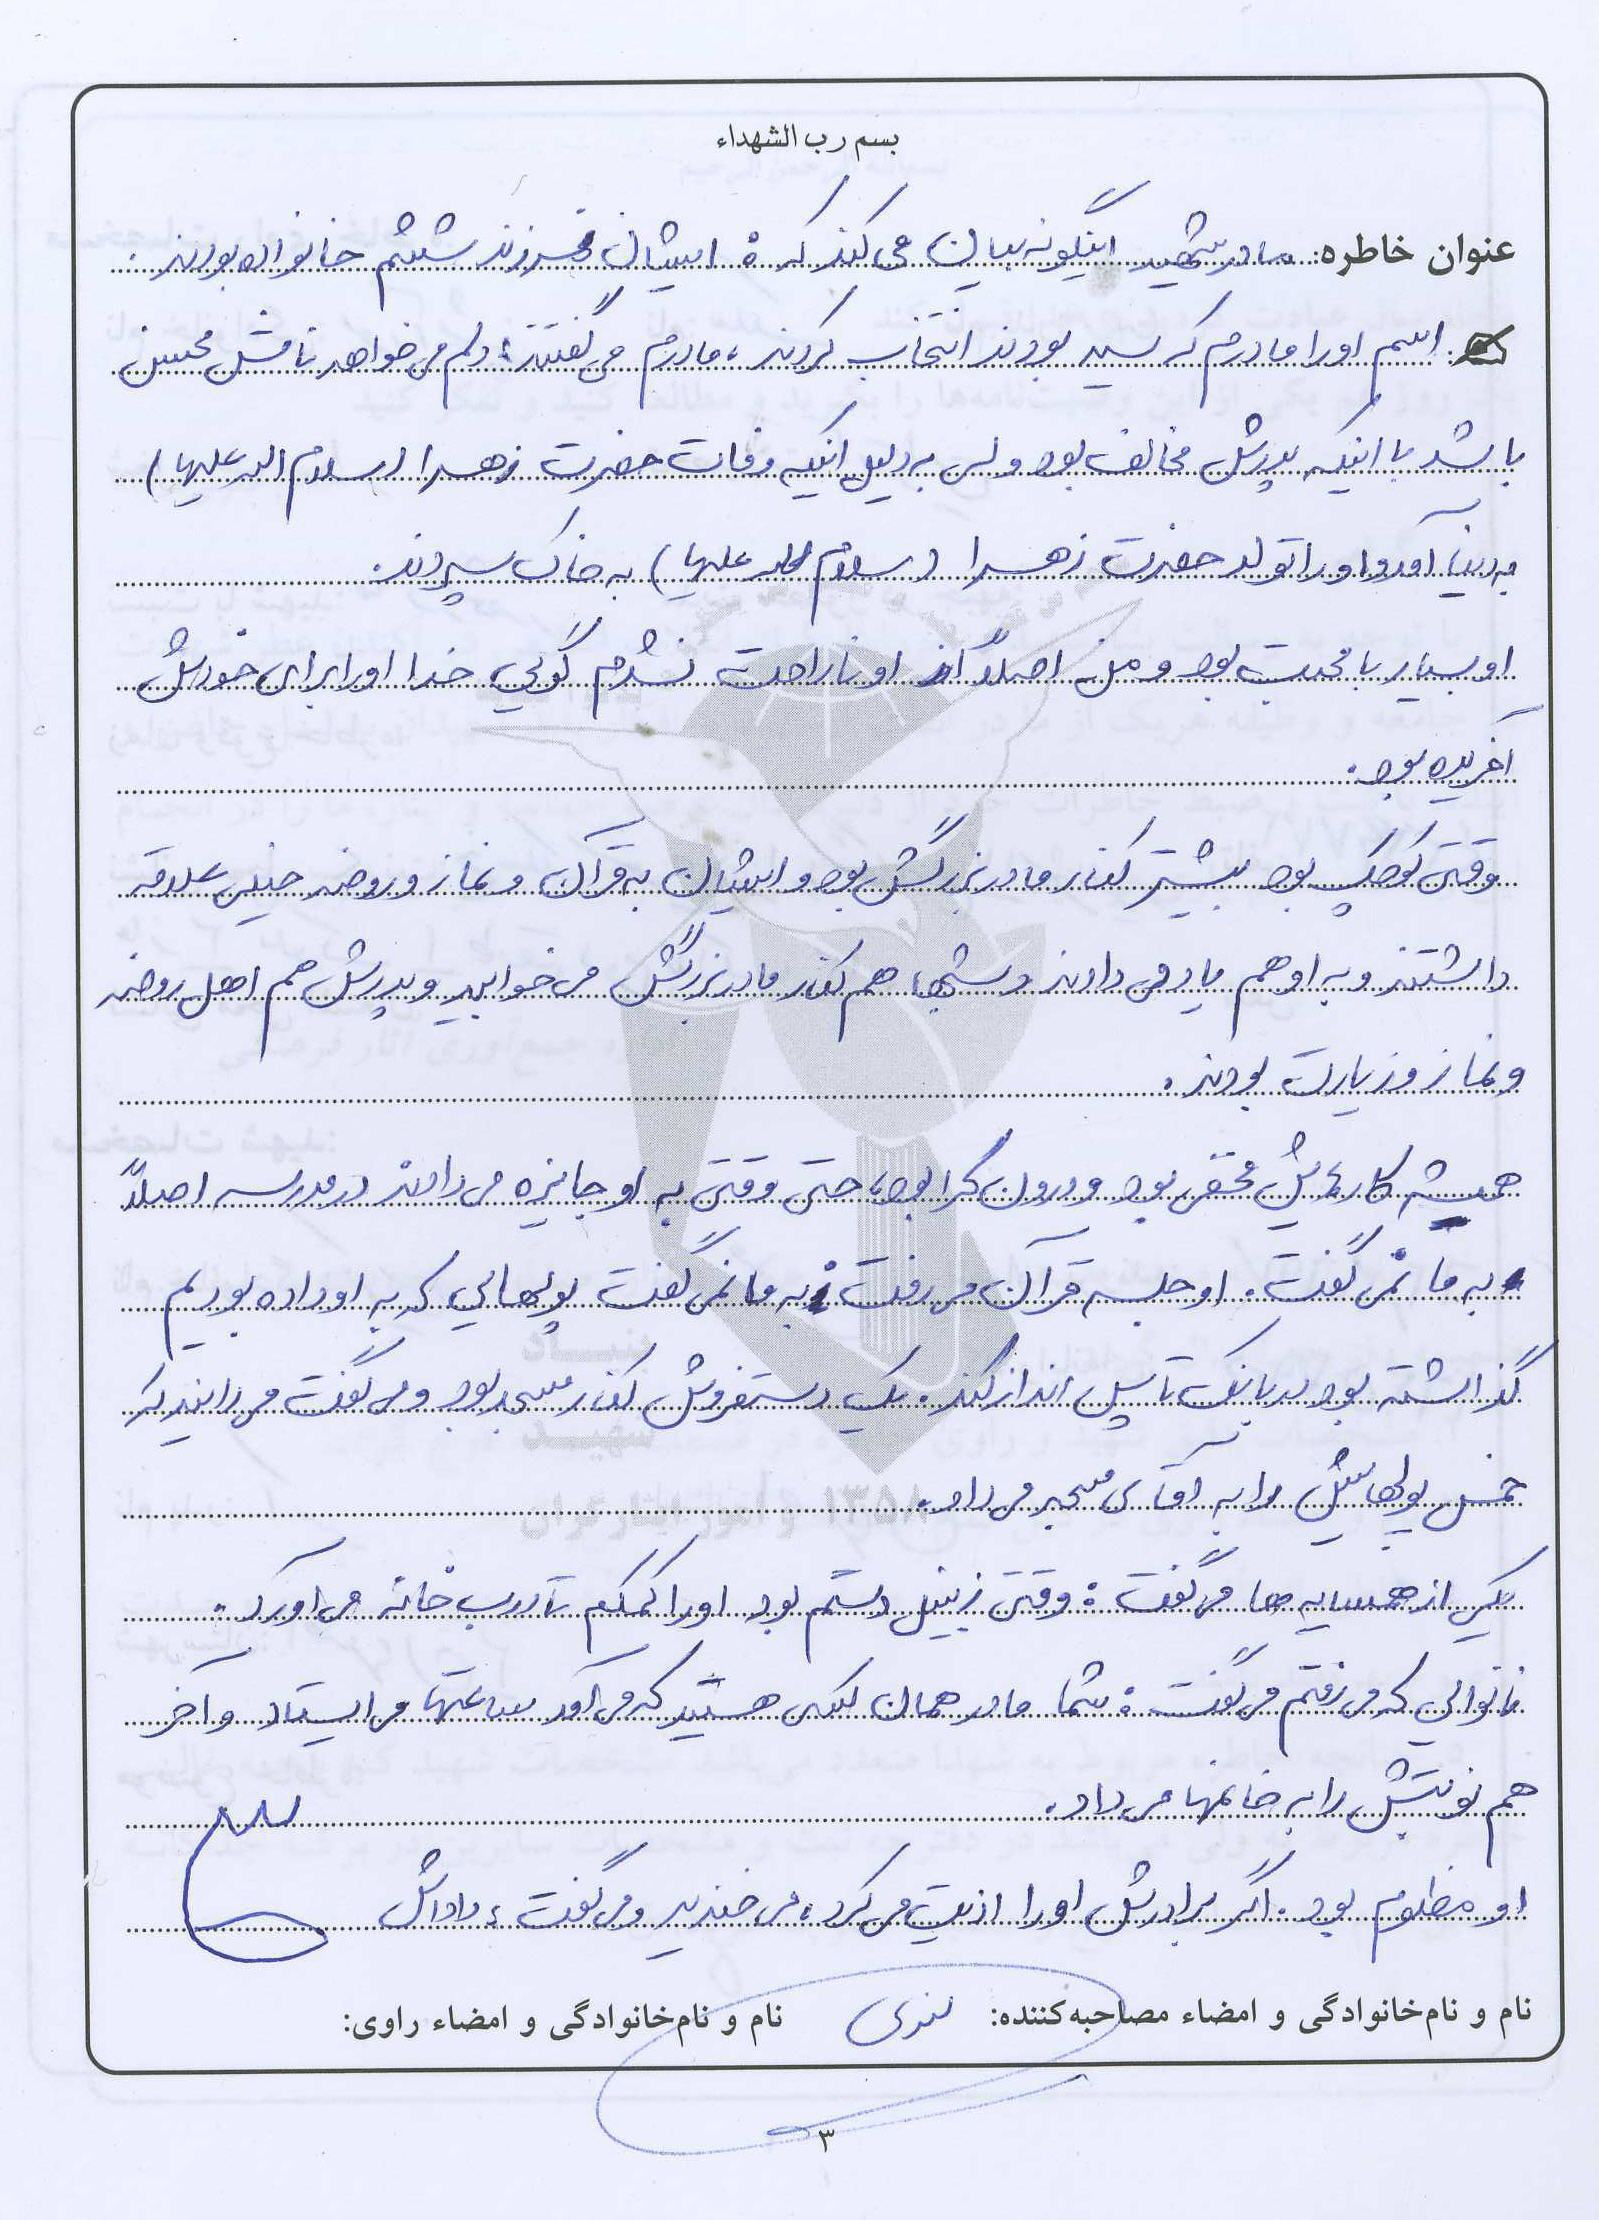 بسم رب الشهداء
عنوان خاطره: مادر شهید اینگونه بیان می کند که: ایشان فرزند ششم خانواده بودند.
اسم او را مادرم که سید بودند انتخاب کردند، مادرم می گفتند: دلم می خواهد نامش محسن
باشد با اینکه پدرش مخالف بود ولی به دلیل اینکه وفات حضرت زهرا (سلام الله علیها)
به دنیا آمد و او را تولد حضرت زهرا (سلام الله علیها) به خاک سپردند.
او بسیار با محبت بود و من اصلاً از او ناراحت نشدم گویی خدا او را برای خودش
آفریده بود.
وقتی کوچک بود بیشتر کنار مادربزرگش بود و ایشان به قرآن و نماز و روضه خیلی علاقه
داشتند و به او هم یاد می دادند و شبها هم کنار مادربزرگش می خوابید و پدرش هم اهل روضه
و نماز و زیارت بودند.
همیشه کارهایش مخفی بود و درون گرا بود، حتی وقتی به او جایزه می دادند در مدرسه اصلاً
به ما نمی گفت. او جلسه قرآن می رفت به ما نمی گفت پولهایی که به او داده بودیم
گذاشته بود در بانک تا پس انداز کند. یک دستفروش کنار مسجد بود و می گفت می دانید که
خمس پولهایش را به آقای مسجد می داد.
یکی از همسایه ها می گفت: وقتی زنبیل دستم بود او را کمکم تا درب خانه می آورد.
نانوایی که می رفتم می گفت: شما مادر همان کسی هستید که می آمد ساعتها می ایستاد و آخر
هم نوبتش را به خانمها می داد.
او مظلوم بود. اگر برادرش او را اذیت می کرد، می خندید و می گفت، داداش
نام و نام‌خانوادگی و امضاء مصاحبه‌کننده:
نام و نام‌خانوادگی و امضاء راوی:
۳
بنیاد
شهید
و امور ایثارگران
۱۳۵۸